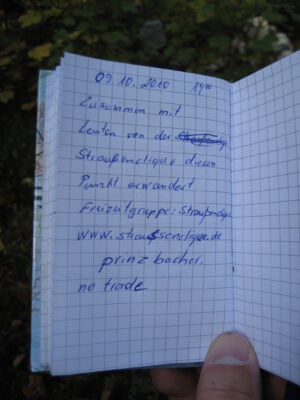 09.10.2010 19⁰⁰
Zusammen mit
Leuten von der
Straußenclique diesen
Punkt erwandert
Freizeitgruppe: Straußenclique
www.straussenclique.de
prinzbacher.
no trade